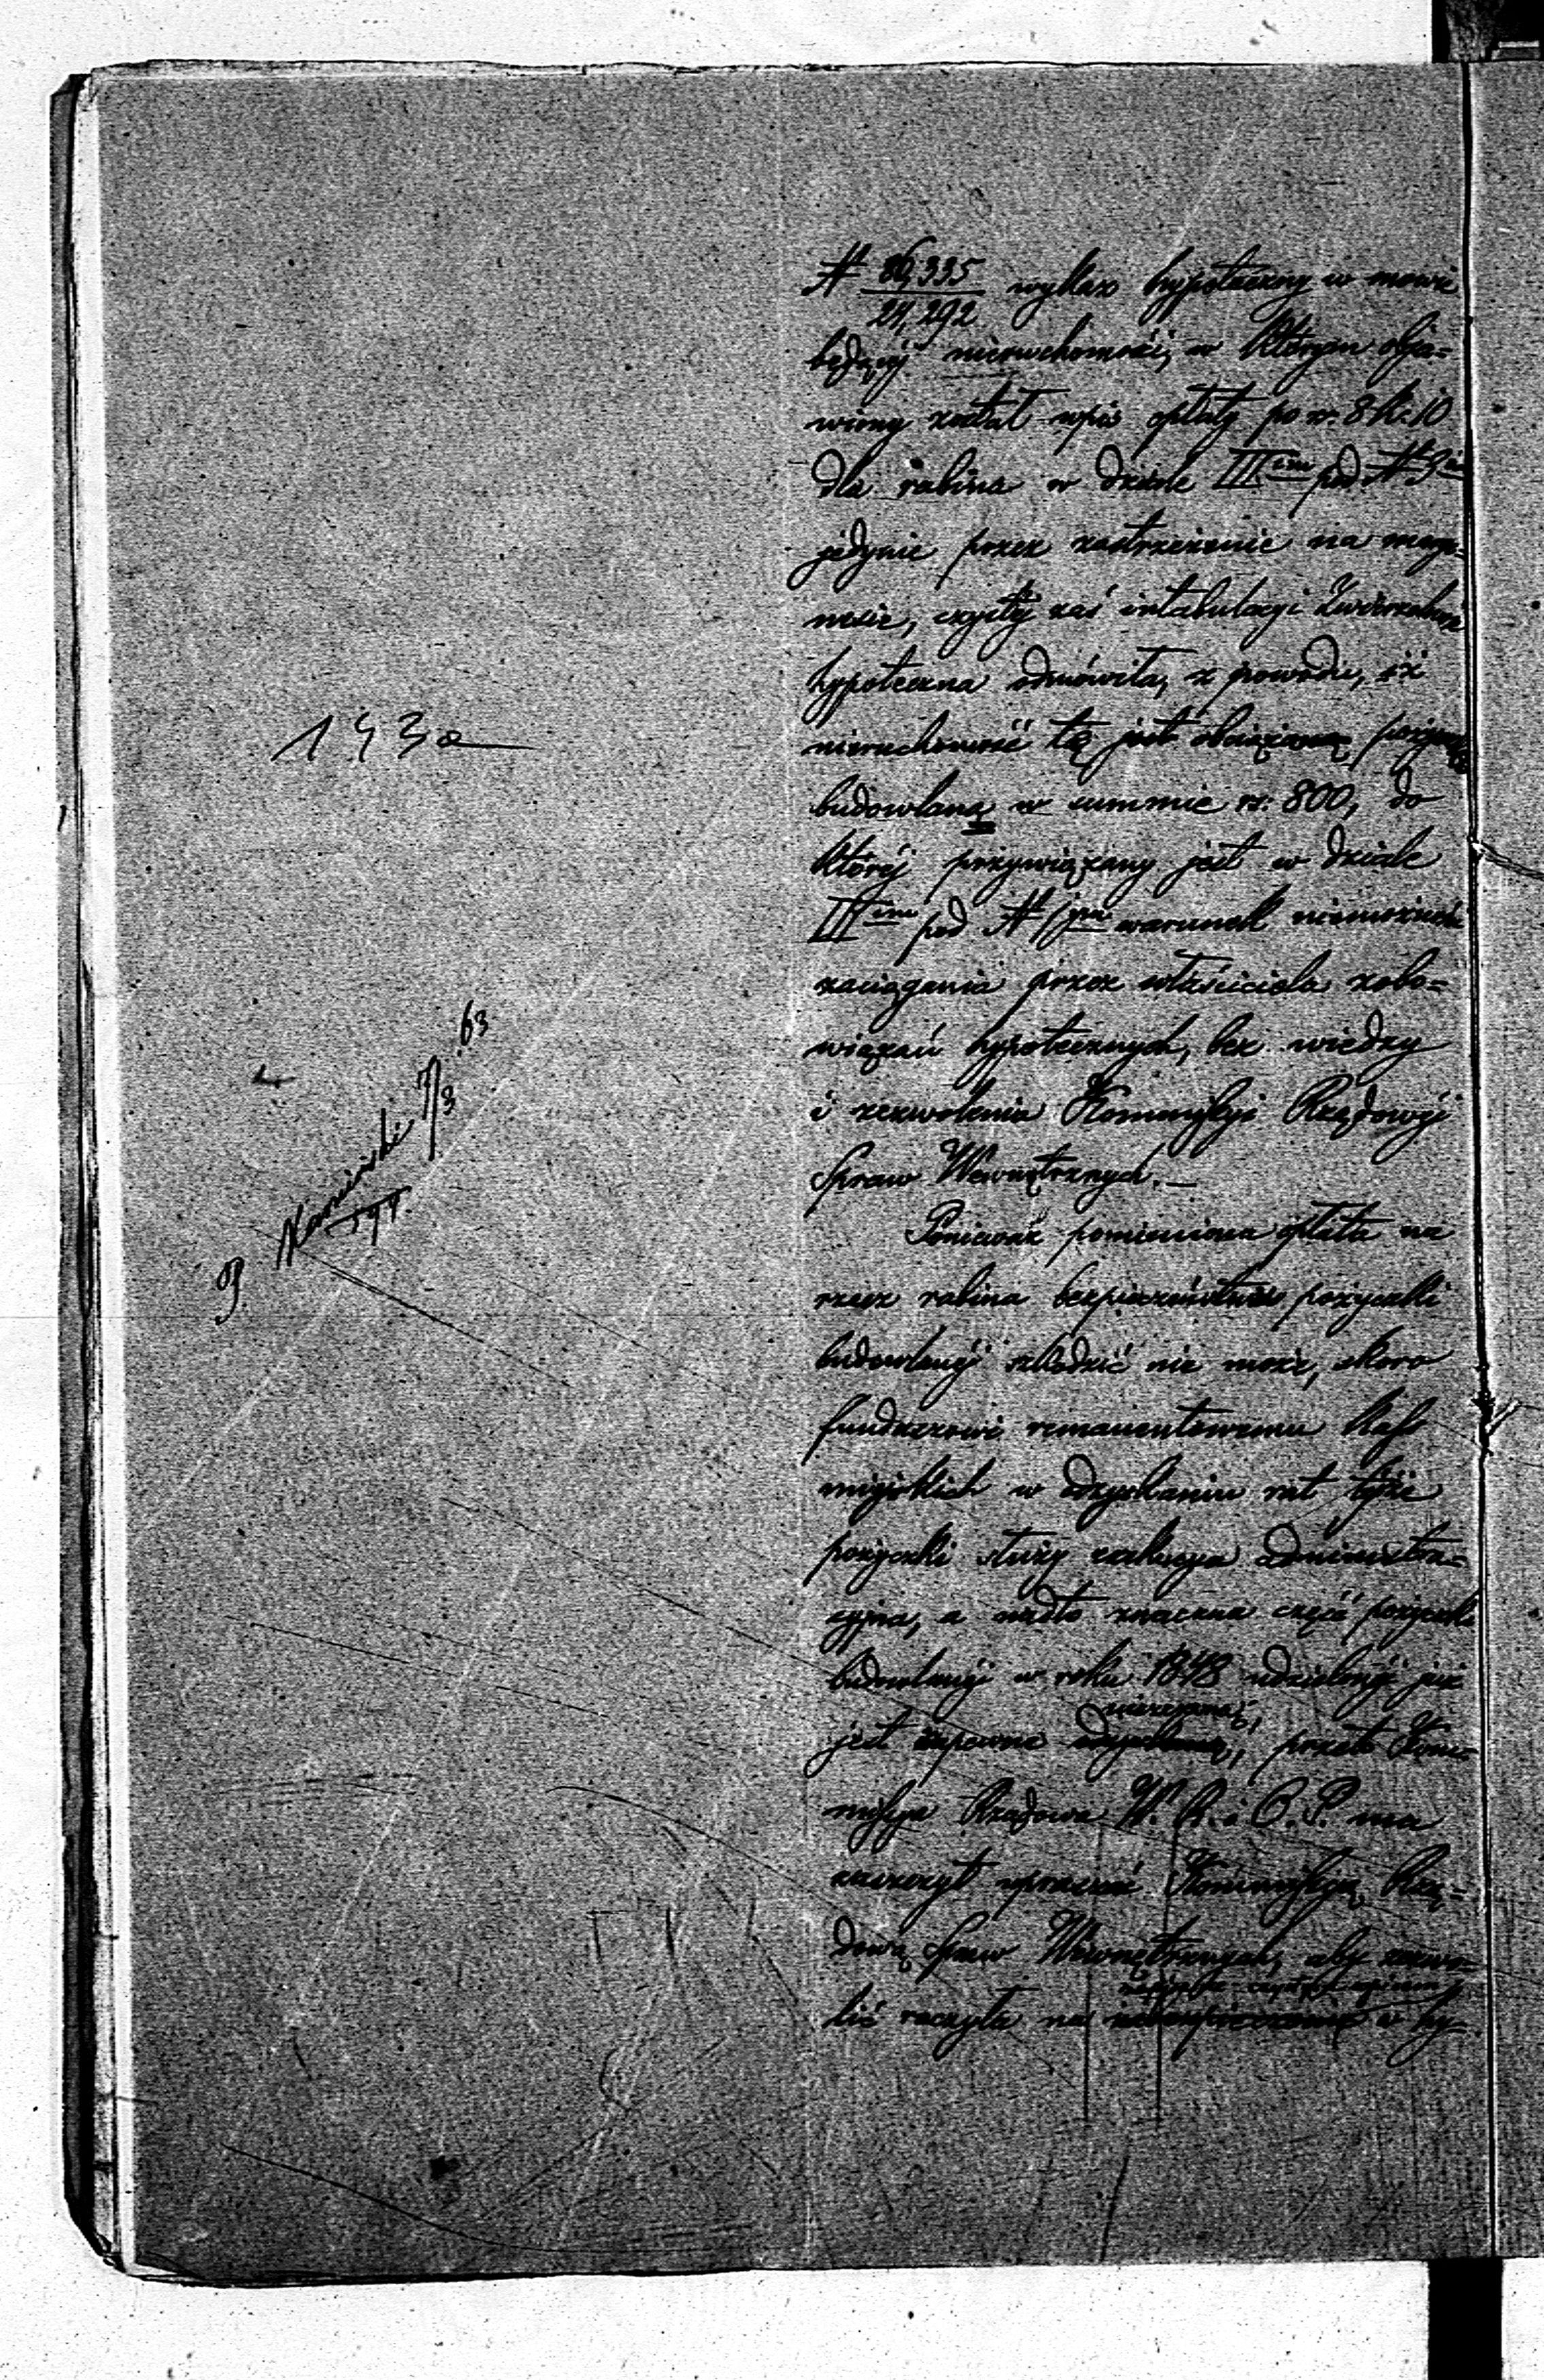 143a
P. Kamiński 7/3 63
N 86,335/24,292 wykaz hypoteczny w mowie
będącéj nieruchomości, w którym obja-
wiony został wpis opłaty po rs. 8 k. 10
dla rabina w dziale III cim pod N 3 im
jedynie przez zastrzeżenie na margi-
nesie, czystéj zaś intabulacyi Zwierzchność
hypoteczna odmówiła, z powodu, iż
nieruchomość ta jest obciążoną pożyczką
budowlaną w summie rs. 800, do
któréj przywiązany jest w dziale
III cim pod N 1 ym warunek niemożności
zaciągania przez właściciela zobo-
wiązań hypotecznych, bez wiedzy
i zezwolenia Kommissyi Rządowéj
Spraw Wewnętrznych. —
Ponieważ pomieniona opłata na
rzecz rabina bezpieczeństwu pożyczki
budowlanéj szkodzić nie może, skoro
funduszowi remanentowemu Kass
miejskich w odzyskaniu rat téjże
pożyczki służy exekucya administra-
cyjna, a nadto znaczna część pożyczki
budowlanéj w roku 1848 udzielonéj już
jest zapewne umorzoną, przeto Kom-
missya Rządowa W. R. i O. P. ma
zaszczyt upraszać Kommissyą Rzą-
dową Spraw Wewnętrznych, aby zezwo-
lić raczyła na w hy-